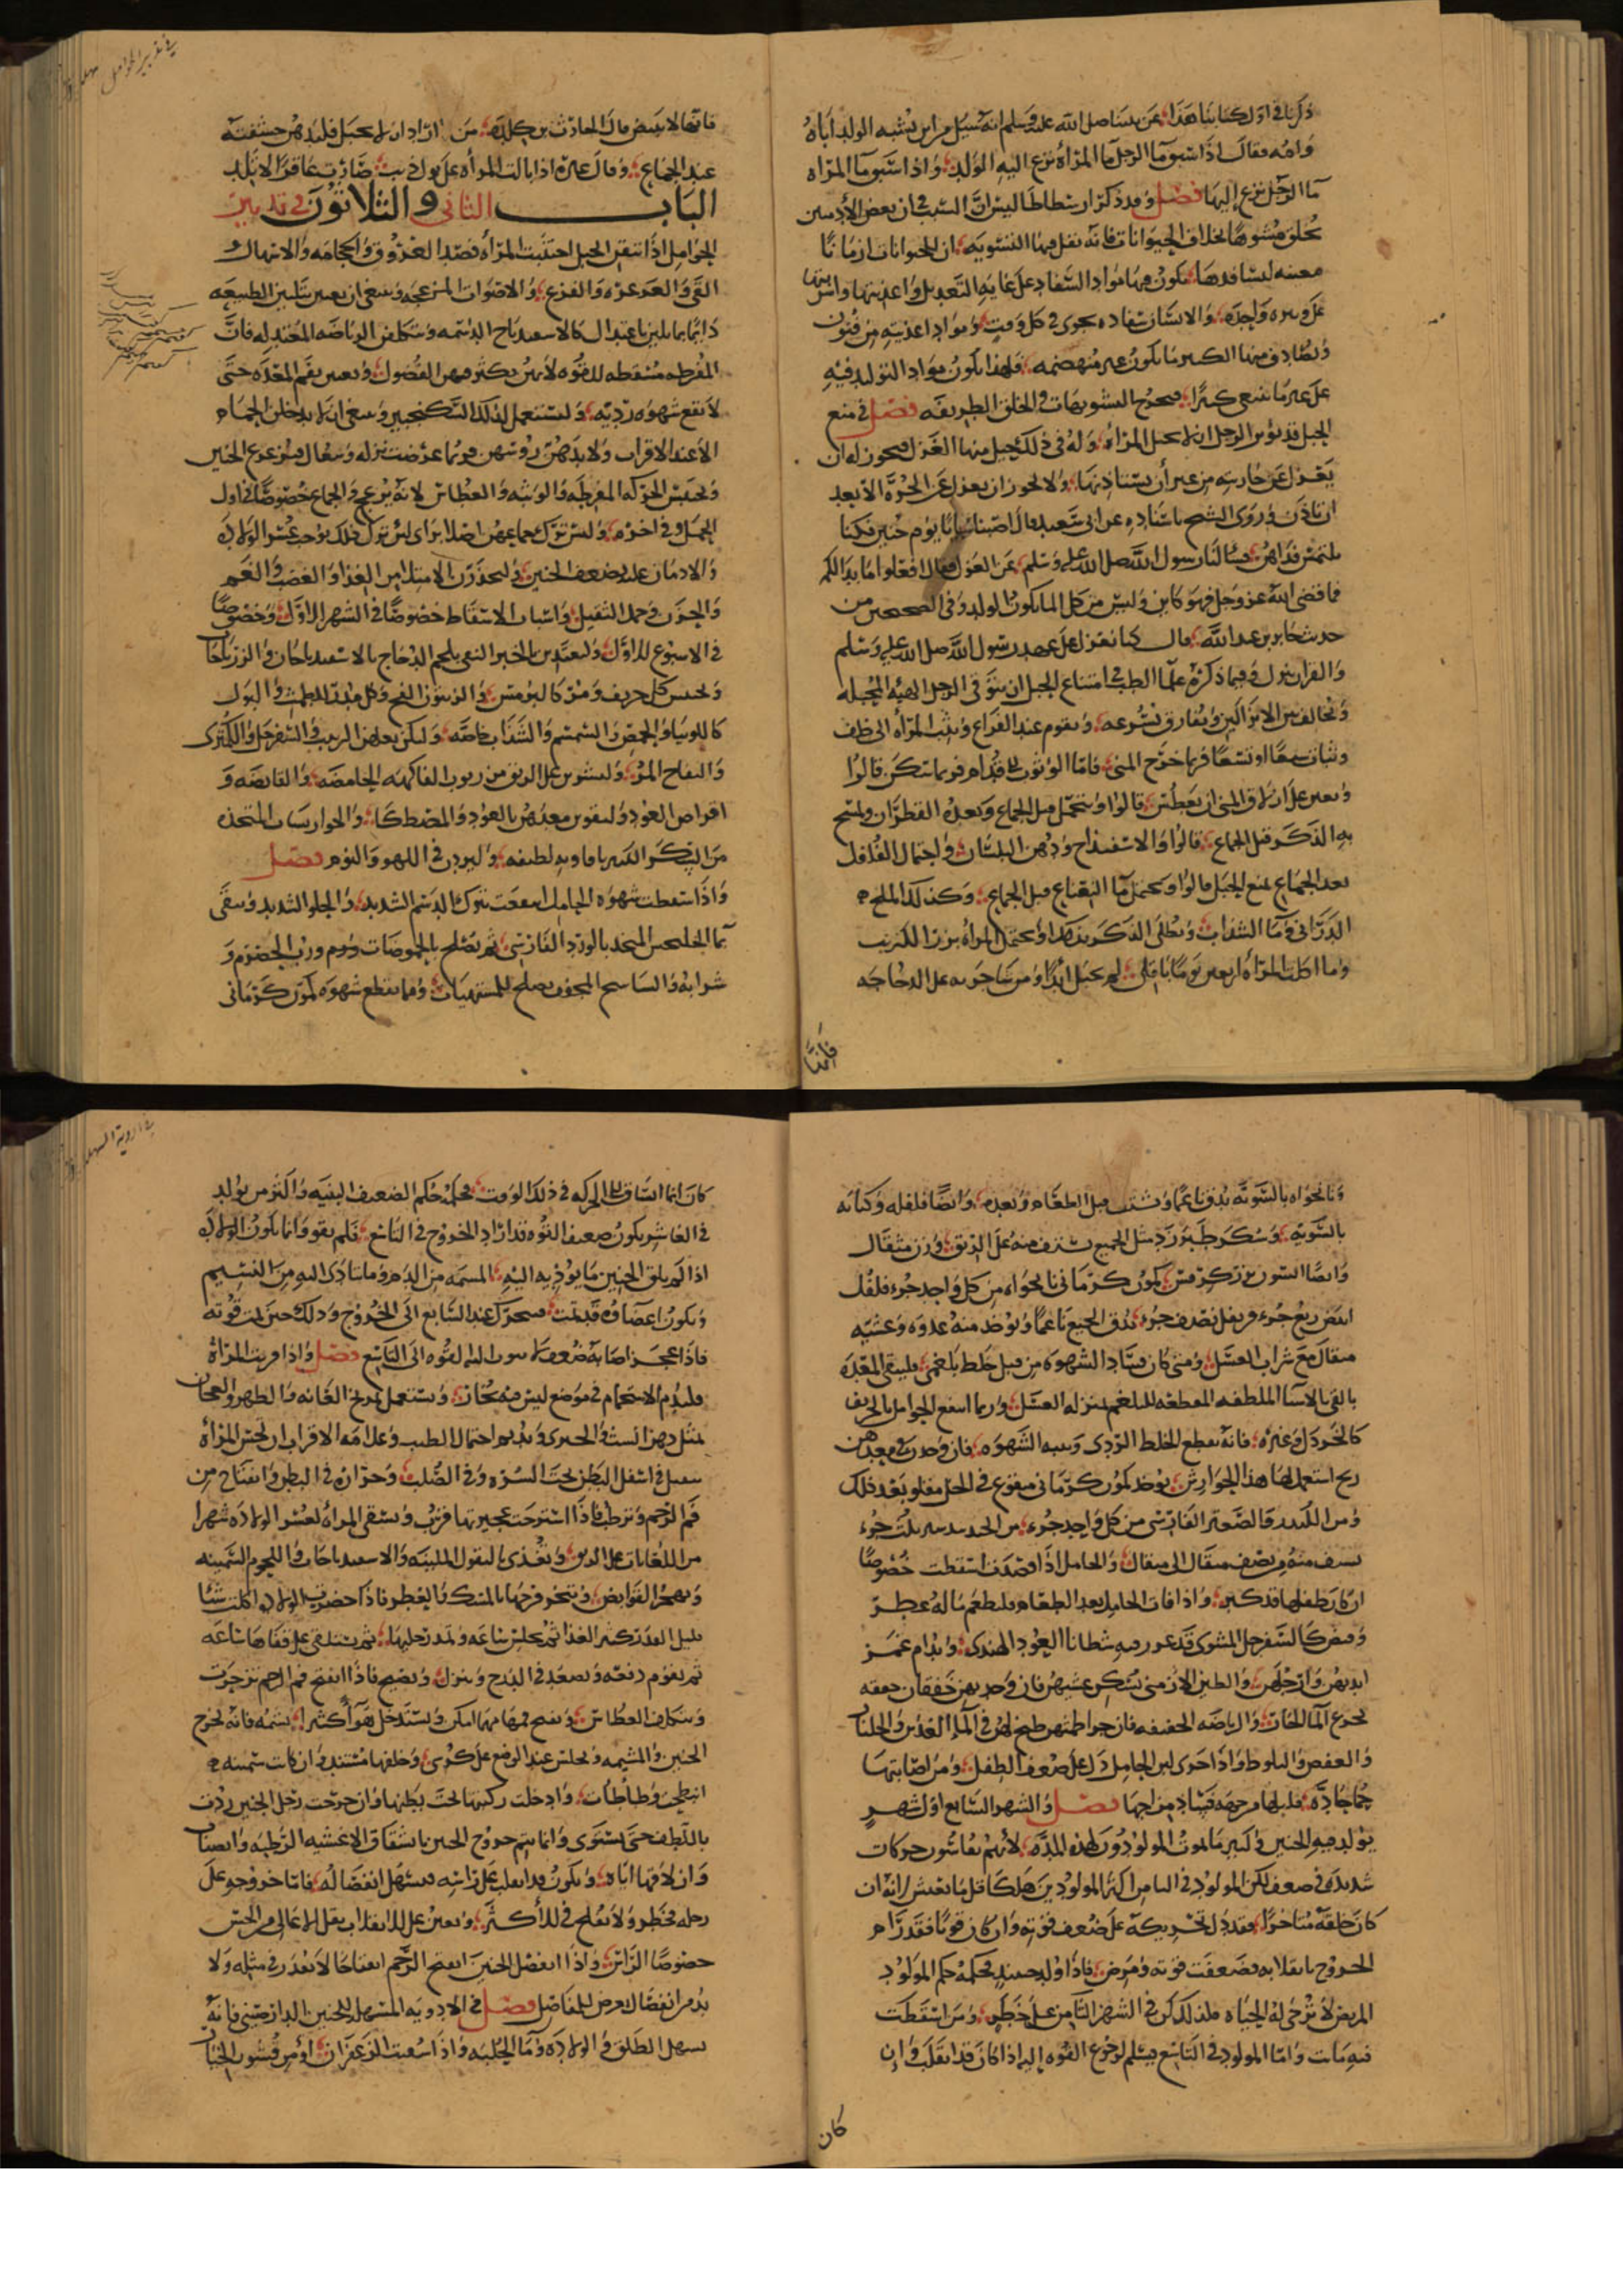 ذكرنا في اول كتابنا هذا عن نبينا صلى الله عليه وسلم انه سئل من اين يشبه الولد اباه
وامه فقال اذا سبق ماء الرجل ماء المرأة نزع اليه الولد واذا سبق ماء المرأه
ماء الرجل نزع إليها فصل وقد ذكر ارسطاطاليس ان السبب في ان بعض الآدميين
يخلق مشوها بخلاف الحيوانات فانه يقل فيها التشويه ان الحيوانات ازمانا
معينه لسفادها يكون فيها مواد السفاد على غاية التعديل واغذيتها واشربتها
على وتيره واحده والانسان سفاده يجرى في كل وقت ومواد اغذيته من فنون
ويصادف منها الكثير ما يكون غير منهضمه فلهذا يكون مواد التوليد فيه
على غير ما ينبغي كثيرا فيخرج التشويهات في الخلق الطريفه فصل في منع
الحبل قد يؤثر الرجل ان لا تحبل المرأه وله في ذلك حيل منها العزل فيجوز له ان
يعزل عن جاريته من غير أن يستأذنها ولا يجوز ان يعزل عن الحرة الا بعد
ان تأذن وروى الشيخ باسناده عن ابى سعيد قال اصبنا سبايا يوم حنين فكنا
نلتمس فداهن فسألنا رسول الله صلى الله عليه وسلم عن العزل فقال افعلوا ما بدا لكم
فما قضى الله عز وجل فهو كاين وليس من كل الماء يكون الولد وفي الصحيحين من
حديث جابر بن عبد الله قال كنا نعزل على عهد رسول الله صلى الله عليه وسلم
والقرآن ينزل وفيما ذكره علماء الطب في امتناع الحبل ان يتوقى الرجل الهيئه المحبله
ويخالف بين الانزالين ويفارق بسرعه ويقوم عند الفراغ وتثب المرأة الى خلف
وثبات سبعا او تسعا فربما خرج المنى فاما الوثوب الى قدام فربما سكن قالوا
ويعين على ازلاق المنى ان يعطس قالوا وتتحمل قبل الجماع وبعده القطران ويمسح
به الذكر قبل الجماع قالوا والاسفيذاج ودهن البلسان واحتمال الفلفل
بعد الجماع يمنع الحبل قالوا وتحتمل ماء النعناع قبل الجماع وكذلك الملح
الدرانى وماء السداب ويطلى الذكر بهذا او تحتمل المرأة بزر الكرنب
وما اكلت المرأة اربعين يوما باقلى لم تحبل ابدا ومن شا جربه على الدجاجه
فانها
في تدبير الحوامل
فانها لا تبيض قال الحارث بن كلده من اراد ان لا تحبل فليدهن حشفته
عند الجماع وقال غيره اذا بالت المرأه على بول ذيب صارت عاقرا لا تلد
الباب الثاني والثلاثون في تدبير
الحوامل اذا تيقن الحبل اجتنبت المرأة فصد العروق والحجامه والاسهال و
القي والعدو غره والفزع والاصوات المزعجه وينبغي ان يعتنى بتليين الطبيعه
دايما بما يلين باعتدال كالاسفيدباج الدسمه ويتكلفن الرياضه المعتدله فان
المفرطه مسقطه للقوه لانهن يكثر فيهن الفضول ويعتنى بفم المعده حتى
لا تقع شهوه رديه وليستعمل لذلك السكنجبين وينبغي ان لا يدخلن الحمام
الا عند الاقراب ولا يدهن رؤسهن فربما عرضت نزله وسعال فيزعزع الجنين
ويجتنبن الحركه المفرطه والوثبه والعطاس لانه يزعج والجماع خصوصا في اول
الحمل وفي اخره وليس تترك جماعهن اصلا براى بل ترك ذلك يوجب عسر الولاده
والادمان عليه يضعف الجنين وليحذرن الامتلاء من الغذاء والغضب والغم
والحزن وحمل الثقيل واسباب الاسقاط خصوصا في الشهر الاول وخصوصا
في الاسبوع الاول وليغتذين بالخبز النقى بلحم الدجاج بالاسفيدباجات والزرباجات
ويجتنبن كل حريف ومر كالترمس والزيتون الفج وكل مدر للطمث والبول
كاللوبيا والحمص والسمسم والسذاب خاصه وليكن بعض الزبيب والسفرجل والكمثرى
والتفاح المز وليشربن على الريق من ربوب الفاكهه الحامضه والقابضه و
اقراص العود وليقوين معدهن بالعود والمصطكا والجوارسات المتخذه
من السكر الكثير بافاويه لطيفه وليزدن في اللهو والنوم فصل
واذا سقطت شهوه الحامل انتفعت بترك الدسم الشديد والحلو الشديد وتسقى
ماء الجلنجبين المتخذ بالورد الفارسى ثم تصلح بالحموضات ودوم ورب الحصرم و
شرابه والنشاستج المجفف يصلح للمشتهيات ومما يقطع شهوه كمون كرمانى
ونانخواه بالسويه يدق ناعما وتستف قبل الطعام وبعده وايضا فلفله وكبابه
بالسويه وسكر طبرزد مثل الجميع تستف منه على الريق وزن مثقال
كمون كرمانى نانخواه من كل واحد جزء فلفل
ابيض ربع جزء قرنفل نصف جزء يدق الجميع ناعما ويؤخذ منه غدوه وعشيه
مثقال مع شراب العسل ومتى كان فساد الشهوه من قبل خلط بلغمى فلينقى المعده
بالقى بالاشيا الملطفه المقطعه للبلغم بمنزله العسل وربما انتفع الحوامل بالحريف
كالخردل وغيره فانه يقطع الخلط الردى وينبه الشهوه فان وجدن في معدهن
ريح استعمل لها هذا الجوارش يؤخذ كمون كرمانى منقوع في الخل مقلو بعد ذلك
ومن الكندر والصعتر الفارسى من كل واحد جزء من الجندبيدستر ثلث جزء
تستف منه من نصف مثقال الى مثقال والحامل اذا فصدت اسقطت خصوصا
ان كان طفلها قد كبر واذا قات الحامل بعد الطعام فلتطعم ماله عطر
وقبض كالسفرجل المشوى قد غرز فيه شظايا العود الهندى ويدام غمز
ايديهن وارجلهن والطين الارمنى يسكن غشيهن فان وجد بهن خفقان
تجرع الماء الحار والرياضه الخفيفه فان جرا طمثهن طبخ لهن في الماء العدس والجلنار
والعفص والبلوط واذا جرى لبن الحامل دل على ضعف الطفل ومن اصابتها
حما حاده فابلها فساد مزاجها فصل والشهر السابع اول شهر
يولد فيه الجنين وكثير ما يموت المولودون لهذه المدة لانهم يقاسون حركات
شديده في ضعف لكن المولود في الثامن اكثر المولودين هلكا قل ما يعيش لانه ان
كان خلقه متاخرا فقد دل تحريكه على ضعف قوته وان كان قويا فقد رام
الخروج بانقلابه فضعفت قوته ومرض فاذا ولد حينئذ فحكمه حكم المولود
المريض لا ترجى له الحياه فلذلك كن في الشهر الثامن على خطر ومن اسقطت
فيه مات واما المولود في التاسع فيسلم لرجوع القوه إليه اذا كان قد انقلب وان
كان
في ادوية المسهله
كان انما اشتاق الى الحركه في ذلك الوقت فحكمه حكم الضعيف البنيه واكثر من يولد
في العاشر يكون ضعيف القوه قد اراد الخروج في التاسع فلم يقو وانما يكون الولاده
اذا لم يلق الجنين ما يؤديه اليه المشيمه من الدم وما يتأدى اليه من النسيم
ويكون اعضاؤه قد تمت فيتحرك عند السابع الى الخروج وذلك حين تمت قوته
فاذا عجز اصابه ضعف لا يثوب اليه القوه الى التاسع فصل واذا قربت المرأة
فلتلزم الاستحمام في موضع ليس فيه بخار وتستعمل تمريخ العانه والظهر والعجان
بمثل دهن الشبث والخيرى وتديم احتمال الطيب وعلامة الاقراب ان تحس المرأة
بثقل في اسفل البطن تحت السره وفي الصلب وحرارة في البطن وانفتاح من
فم الرحم وترطب فاذا استرخت عجيزتها قرب وتسقى المرأه لعسر الولاده شهرا
من اللعابات على الريق وتغذى بالبقول الملينه والاسفيدباجات واللحوم السمينه
وتهجر القوابض وتبخر فرجها بالمسك والعطر فاذا حضرت الولاده اكلت شيئا
قليل القدر كثير الغذاء ثم تجلس ساعه وتمد رجليها ثم تستلقى على قفاها ساعه
ثم تقوم دفعه وتصعد في الدرج وتنزل وتصيح فاذا انفتح فم الرحم تزحرت
وتتكلف العطاس وتفتح فمها مهما امكن وتستدخل هواء كثيرا بشمه فانه يخرج
الجنين والمشيمه وتجلس عند الوضع على كرسى وخلفها مستند وان كانت سمينه
انبطحت وطأطأت وادخلت ركبتها تحت بطنها وان خرجت رجل الجنين ردت
باللطف حتى يستوى وانما يتم خروج الجنين بانشقاق الاغشيه الرطبه وانصباب
وازلاقها اياه ويكون قد انقلب على راسه فيسهل انفصاله فاما خروجه على
رجله فخطر ولا يفلح في الأكثر ويعين على الانقلاب ثقل الاعالى من الجنين
خصوصا الراس واذا انفصل الجنين انفتح الرحم انفتاحا لا يقدر في مثله ولا
بد من انفصال يعرض للمفاصل فصل في الادويه المسهله للجنين الدارصينى فانه
يسهل الطلق والولاده وماء الحلبه واذا اسقيت الزعفران او من قشور الخيار